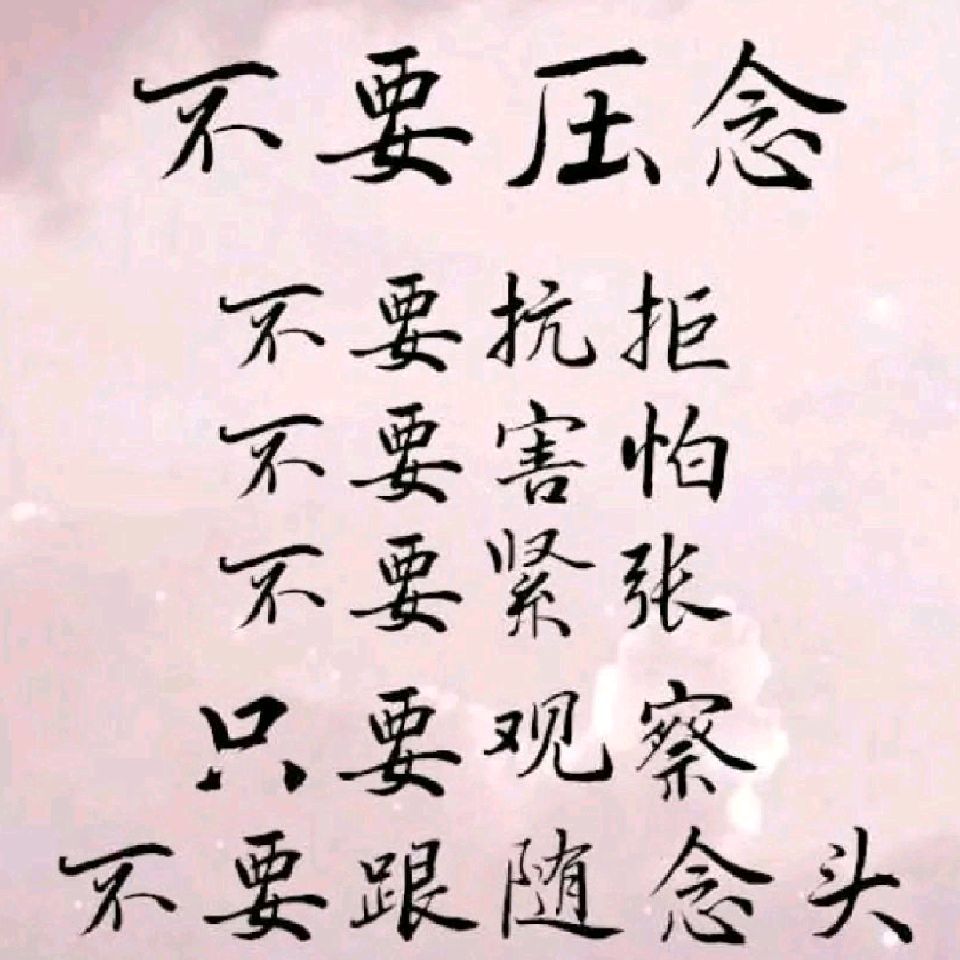 不要压念
不要抗拒
不要害怕
不要紧张
只要观察
不要跟随念头